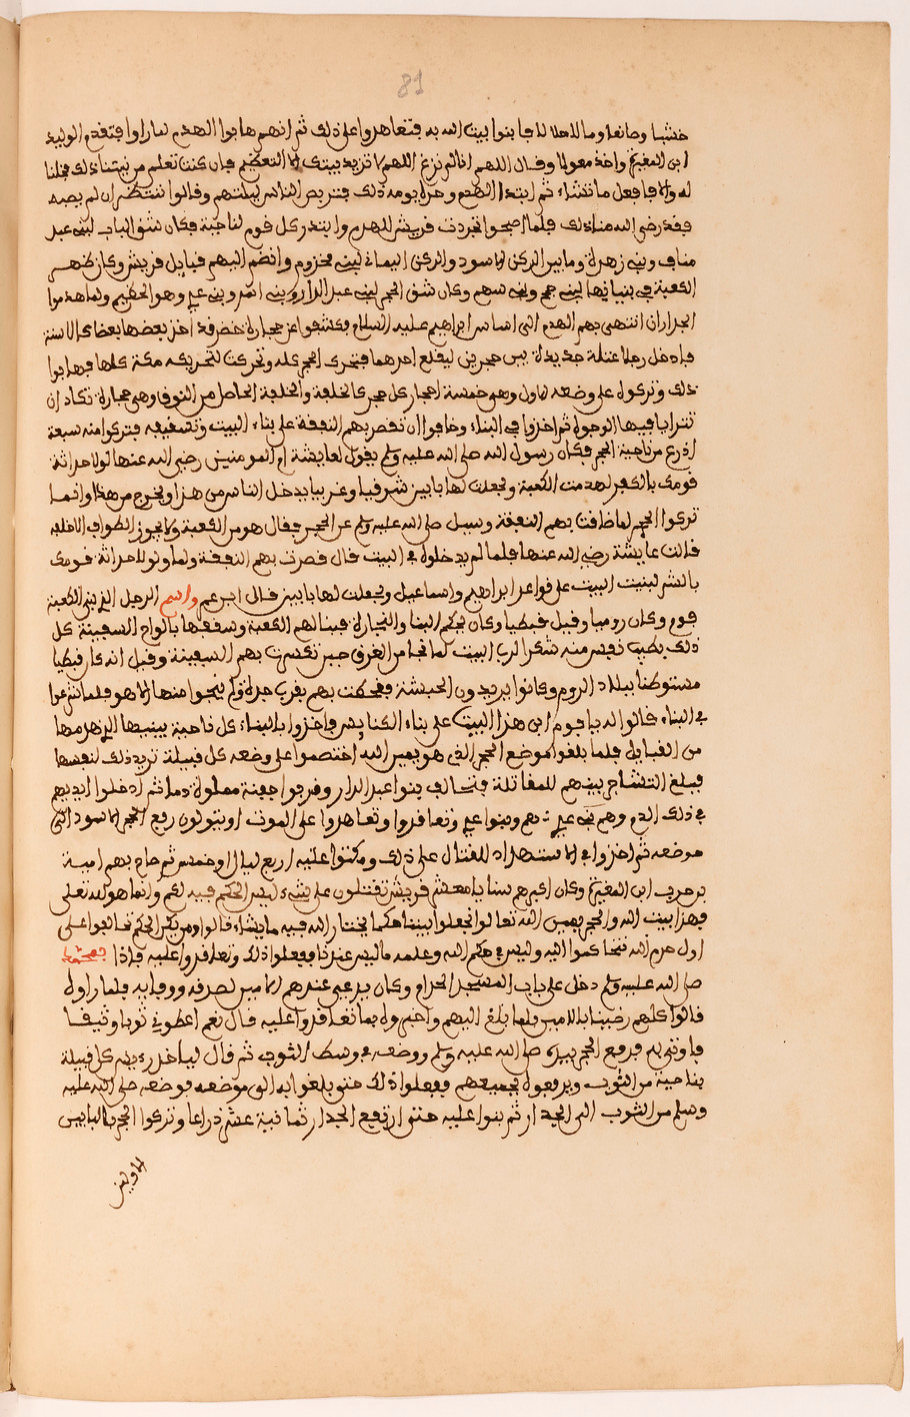 81
خشبا وصانعا ومالا حلالا فابنوا بيت الله به فتعاهدوا على ذلك ثم انهم هابوا الهدم لما راوا فتقدم الوليد
ابن المغيرة واخذ معولا وقال اللهم انا لم نزغ اللهم لا نريد ببيتك الا التعظيم فان كنت تعلم من نيتنا ذلك فخلنا
له والا فافعل ما تشاء ثم ابتدا الهدم وحده يومه ذلك فتربص الناس ليلتهم وقالوا ننتظر ان لم يصبه
فقد رضي الله منا ذلك فلما اصبحوا تجردت قريش للهدم وابتدر كل قوم لناحية فكان شق الباب لبني عبد
مناف وبني زهرة وما بين الركن الاسود والركن اليماني لبني مخزوم وانضم اليهم قبايل قريش وكان ظهر
الكعبة في بنيانها لبني جمح وبني سهم وكان شق الحجر لبني عبد الدار وبني اسد وبني عدي وهو الحطيم ولما هدموا
الجدار ان انتهى بهم الهدم الى اساس ابراهيم عليه السلام فكشفوا عن حجارة خضر قد اخذ بعضها بعضا كالاسنة
فادخل رجل عتلة حديدة بين حجرين ليقلع احدهما فتحرك الحجر كله وتحركت لتحريكه مكة كلها فهابوا
ذلك وتركوه على وضعه الاول وهي خمسة احجار كل حجر كالخلفة والخلفة الحامل من النوق وهي حجارة تكاد ان
تترايا فيها الوجوه ثم اخذوا في البناء وخافوا ان تقصر بهم النفقة على بناء البيت وتسقيفه فتركوا منه سبعة
اذرع من ناحية الحجر فكان رسول الله صلى الله عليه وسلم يقول لعايشة ام المومنين رضي الله عنها لولا حداثة
قومك بالكفر لهدمت الكعبة وجعلت لها بابين شرقيا وغربيا يدخل الناس من هذا ويخرج من هذا وانما
تركوا الحجر لما ضاقت بهم النفقة وسيل صلى الله عليه وسلم عن الحجر فقال هو من الكعبة ولا يجوز الطواف الا خلفه
قالت عايشة رضي الله عنها فلما لم يدخلوه في البيت قال قصرت بهم النفقة ولما ولولا حداثة قومك
بالشر لبنيت البيت على قواعد ابراهيم واسماعيل وجعلت لها بابين قال ابن عمر واسم الرجل الذي بنى الكعبة
قوم وكان روميا وقيل قبطيا وكان يحكم البنا والنجارة فبنا لهم الكعبة وسقفها بالواح السفينة كل
ذلك بطيب نفس منه شكرا لرب البيت لما نجا من الغرق حين تكسرت بهم السفينة وقيل انه كان قبطيا
مستوطنا ببلاد الروم وكانوا يريدون الحبشة فضحكت بهم بقرب جدة ولم ينجوا منها الا هو فلما شرعوا
في البناء قالوا له يا قوم ابن هذا البيت على بناء الكنايس واخذوا بالبناء كل ناحية يبنيها الذي هدمها
من القبايل فلما بلغوا موضع الحجر الذي هو يمين الله اختصموا على وضعه كل قبيلة تريد ذلك لنفسها
فبلغ التشاجر بينهم للمقاتلة فتحالف بنوا عبد الدار وقربوا جفنة مملوة دما ثم ادخلوا ايديهم
في ذلك الدم وهم بني عدي وبنوا عدي وتعاقدوا وتعاهدوا على الموت او يتولون رفع الحجر الاسود الى
موضعه ثم اخذوا في الاستعداد للقتال على ذلك ومكثوا عليه اربع ليال او خمس ثم صاح بهم امية
بن حرب ابن المغيرة وكان اكبرهم سنا يا معشر قريش تقتتلون على شيء ليس الحكم فيه لكم وانما هو لله تعلى
فهذا بيت الله والحجر يمين الله تعالوا نجعلوا بيننا حكما يختار الله فيه ما يشاء قالوا ومن يكن الحكم قالوا على
اول حرم الله فتحاكموا اليه وليس في حكم الله وعلمه ما ليس عندنا ففعلوا ذلك وتعاقدوا عليه فاذا
صلى الله عليه وسلم دخل على باب المسجد الحرام وكان يدعى عندهم الامين لصدقه ووفايه فلما راوه
قالوا كلهم رضينا بالامين فلما بلغ اليهم واخبروه بما تعاقدوا عليه قال نعم اعطوني ثوبا وثيقا
فاوتي به فرفع الحجر بيده صلى الله عليه وسلم ووضعه في وسط الثوب ثم قال لياخذ رييس كل قبيلة
بناحية من الثوب ويرفعوه بجميعهم ففعلوا ذلك حتى بلغوا به الى موضعه فوضعه صلى الله عليه
وسلم من الثوب الى الجدار ثم بنوا عليه حتى ارتفع الجدار ثمانية عشر ذراعا وتركوا الحجر بالبابين
الاولين